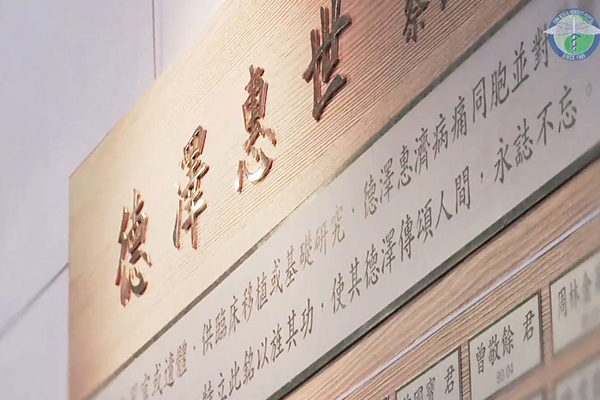 德澤惠世
器官或遺體，供臨床移植或基礎研究，德澤惠濟病痛同胞並對
特立此銘以旌其功，使其德澤傳頌人間，永誌不忘。
周林金
曾敬餘 君
90.04
君
SINCE 1895